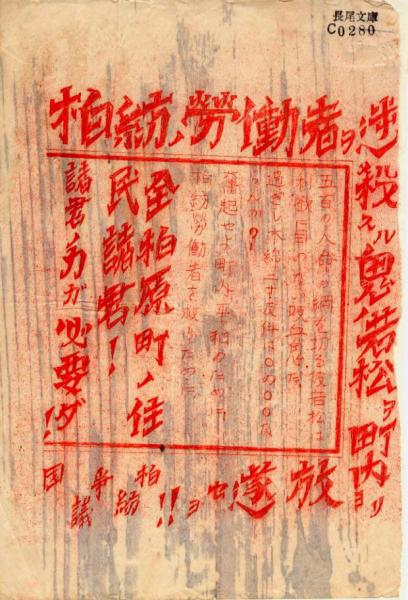 長尾文庫
C0280
柏紡ノ勞働者ヲ
逆殺スル鬼若松ヲ町内ヨリ
放遂セヨ!!
五百の人命の綱を切る彼若松は
吸血鬼だ
過ぎし
らんか?
奮起せよ町内平和のために
柏紡勞働者を救ふために
全柏原町ノ住
民諸君!
諸君ノ力ガ必要ダ!
柏紡
争議
団